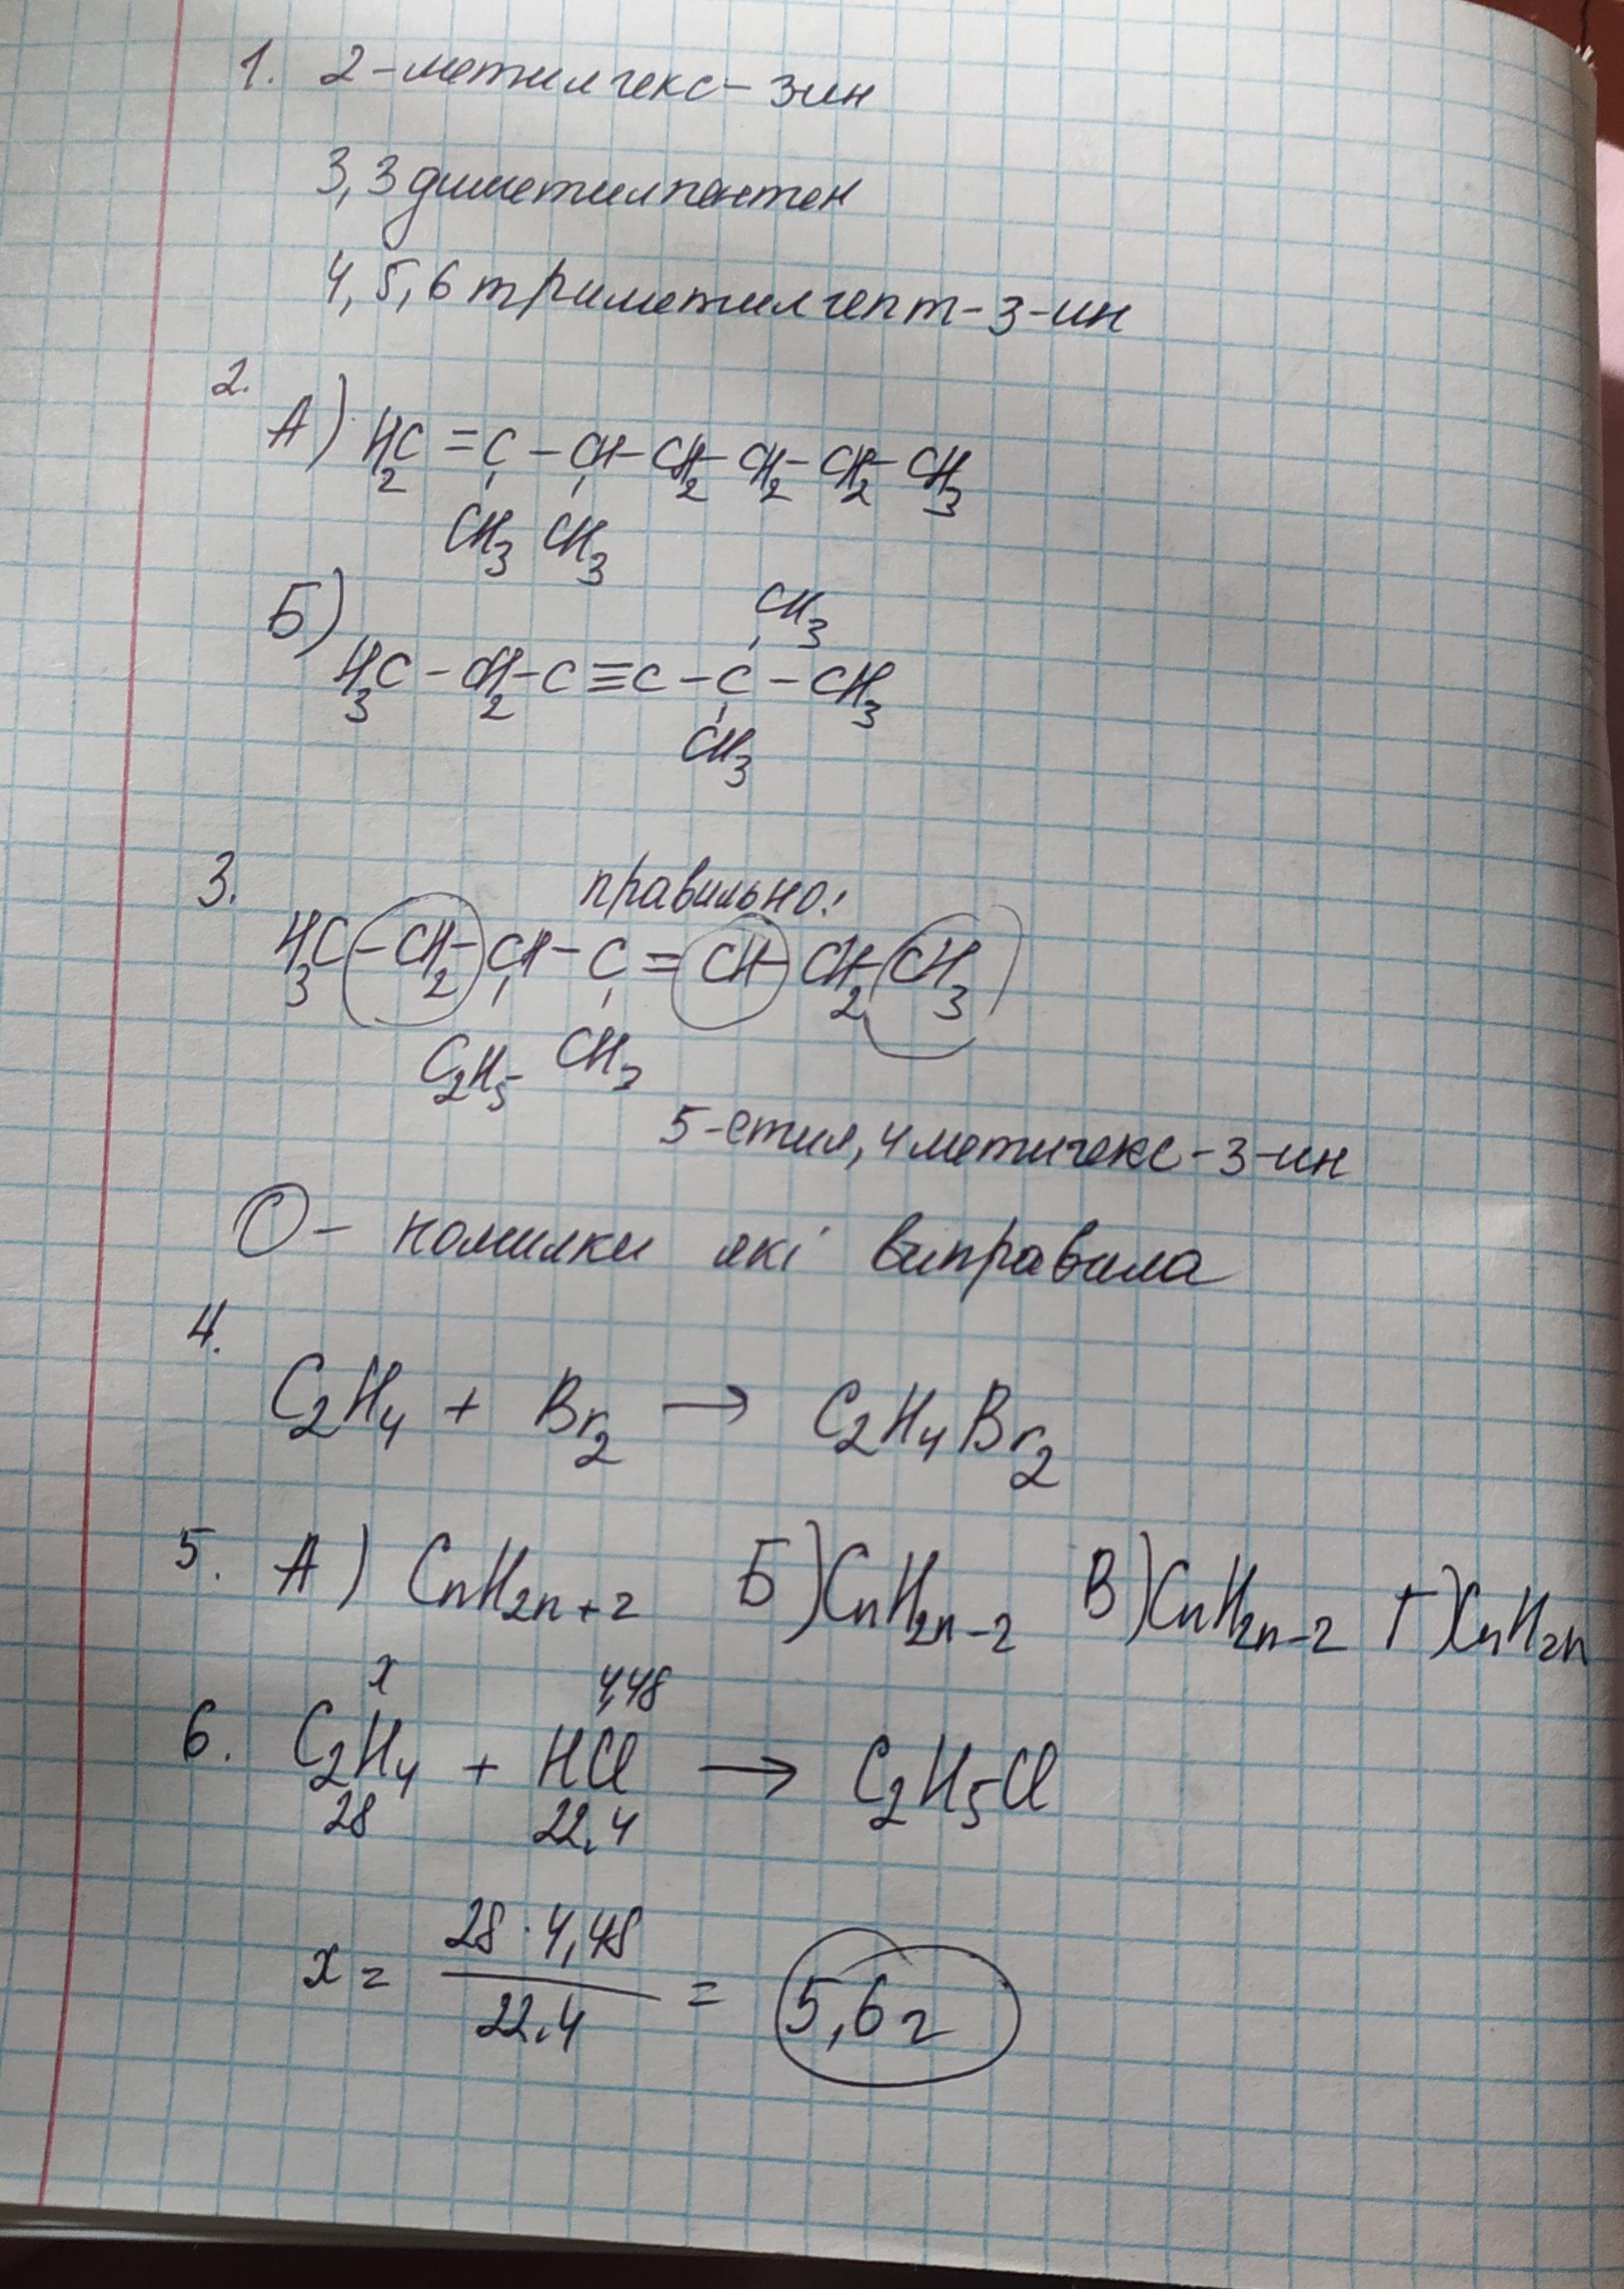 1. 2-метилгекс-3ин
3,3диметилпентен
4,5,6триметилгепт-3-ин
2.
А) H₂C=C-CH-CH₂-CH₂-CH₂-CH₃
CH₃ CH₃
Б)
CH₃
H₃C-CH₂-C≡C-C-CH₃
CH₃
3.
правильно:
H₃C-CH₂-CH-C=CH-CH₂-CH₃
C₂H₅ CH₃
5-етил,4метигекс-3-ин
О- помилки які виправила
4.
C₂H₄ + Br₂ → C₂H₄Br₂
5. А) CnH2n+2 Б) CnH2n-2 В) CnH2n-2 Г) CnH2n
x 4,48
6. C₂H₄ + HCl → C₂H₅Cl
28 22.4
28·4,48
x= ――― = 5,6г
22.4